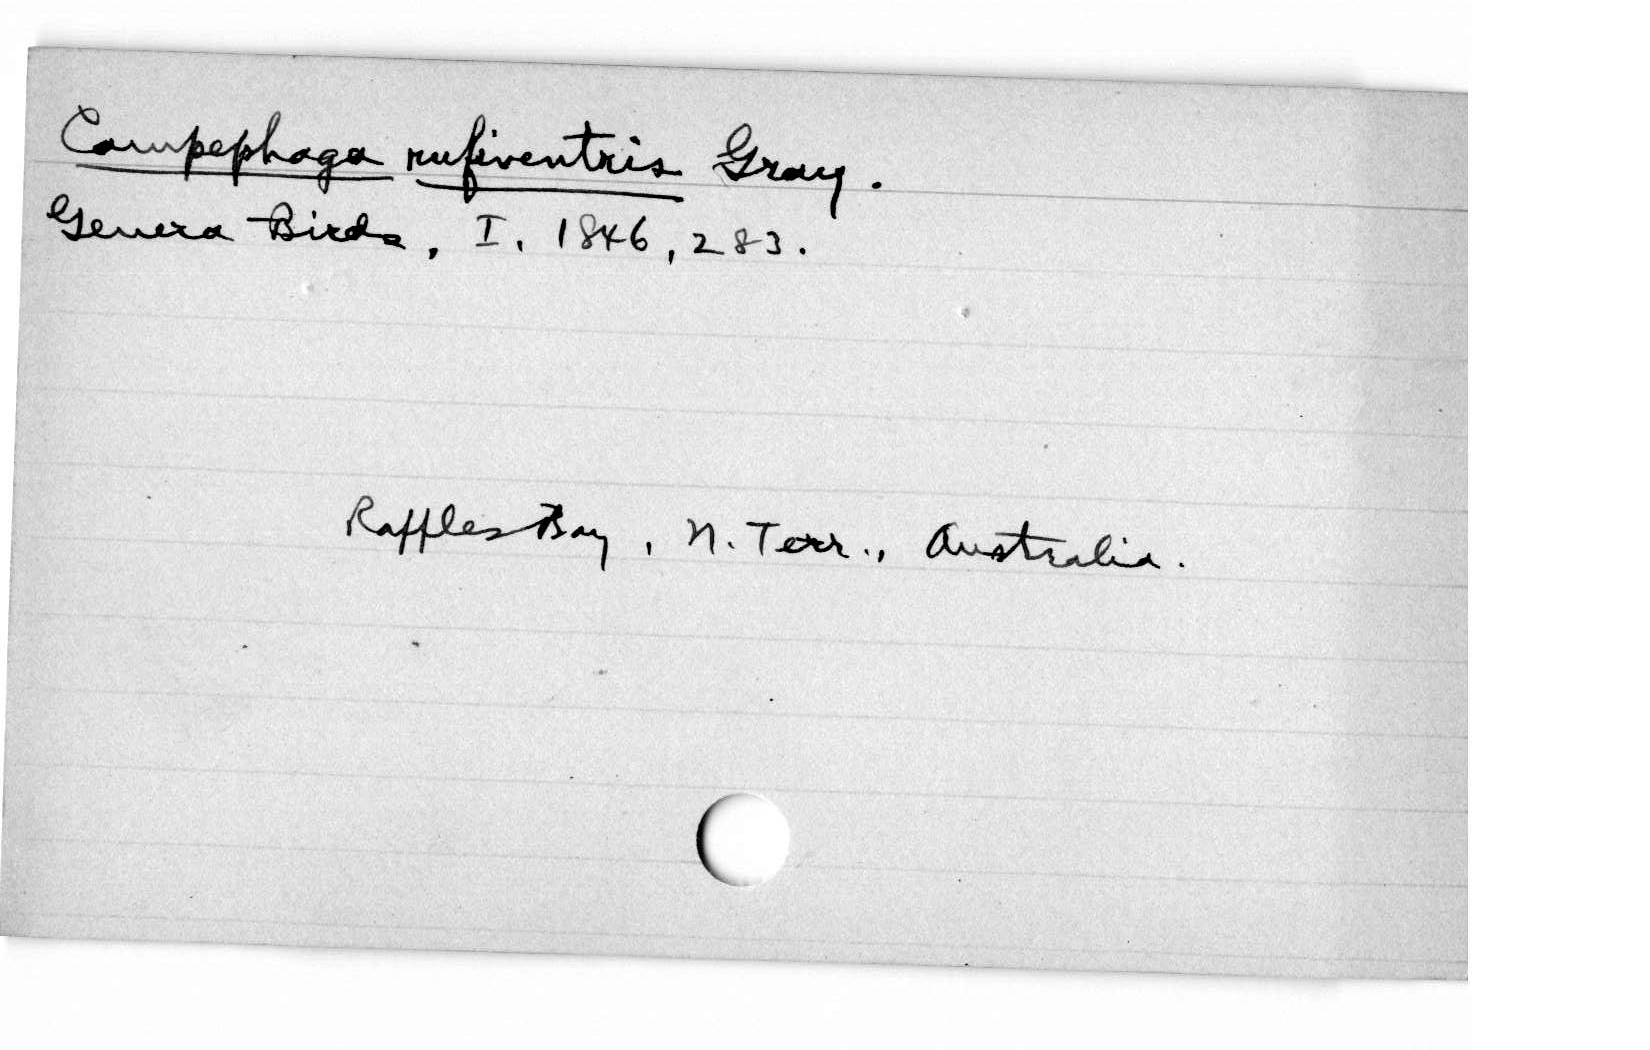 Campephaga rufiventris Gray.
Genera Birds, I, 1846, 283.
Raffles Bay, N. Terr., Australia.